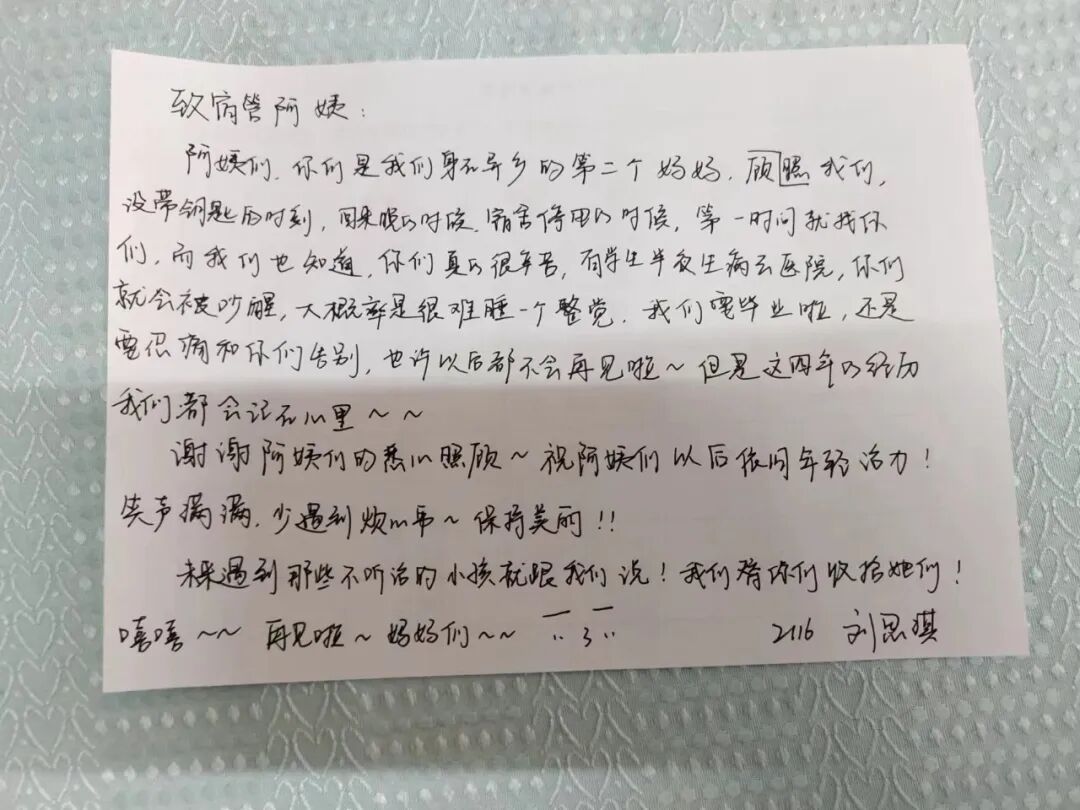 致宿管阿姨：
阿姨们，你们是我们身在异乡的第二个妈妈，顾照我们，
没带钥匙的时刻，回来晚的时候，宿舍停电的时候，第一时间就找你
们，而我们也知道，你们真的很辛苦，有学生半夜生病去医院，你们
就会被吵醒，大概率是很难睡一个整觉。我们要毕业啦，还是
要很痛和你们告别，也许以后都不会再见啦～但是这四年的经历
我们都会记在心里～～
谢谢阿姨们的悉心照顾～祝阿姨们以后依旧年轻活力！
笑声满满，少遇到烦心事～保持美丽！！
未来遇到那些不听话的小孩就跟我们说！我们替你们收拾她们！
嘻嘻～～ 再见啦～妈妈们～～ 2116 刘思琪